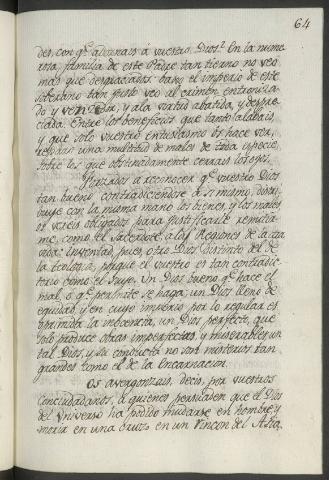 64
des, con q.e adornais á vuestro Dios? En la nume
rosa familia de este Padre tan tierno no veo
mas que desgraciados: bajo el imperio de este
soberano tan justo veo al crimen entroniza
do y á la virtud abatida, y despre
ciada. Entre los beneficios que tanto alabais,
y que solo vuestro entusiasmo os hace ver,
veo una multitud de males de toda especie,
sobre los que obstinadamente cerrais los ojos.
Forzados á reconocer q.e vuestro Dios
tan bueno contradiciendose á si mismo, distri
buye con la misma mano los bienes, y los males
os vereis obligados para justificarle remitir
me, como el Sacerdote, á las Regiones de la otra
vida. Inventad pues otro Dios distinto del de
la teologia, porque el vuestro es tan contradic
torio como el suyo. Un Dios bueno q.e hace el
mal, ó q.e permite se haga; un Dios lleno de
equidad, y en cuyo imperio por lo regular es
oprimida la inocencia; un Dios perfecto, que
solo produce obras imperfectas, y miserables; un
tal Dios, y su conducta no son misterios tan
grandes como el de la Encarnacion.
Os avergonzais, decis, por vuestros
Conciudadanos, á quienes persuaden que el Dios
del Universo ha podido mudarse en hombre, y
morir en una cruz en un Rincon del Asia.